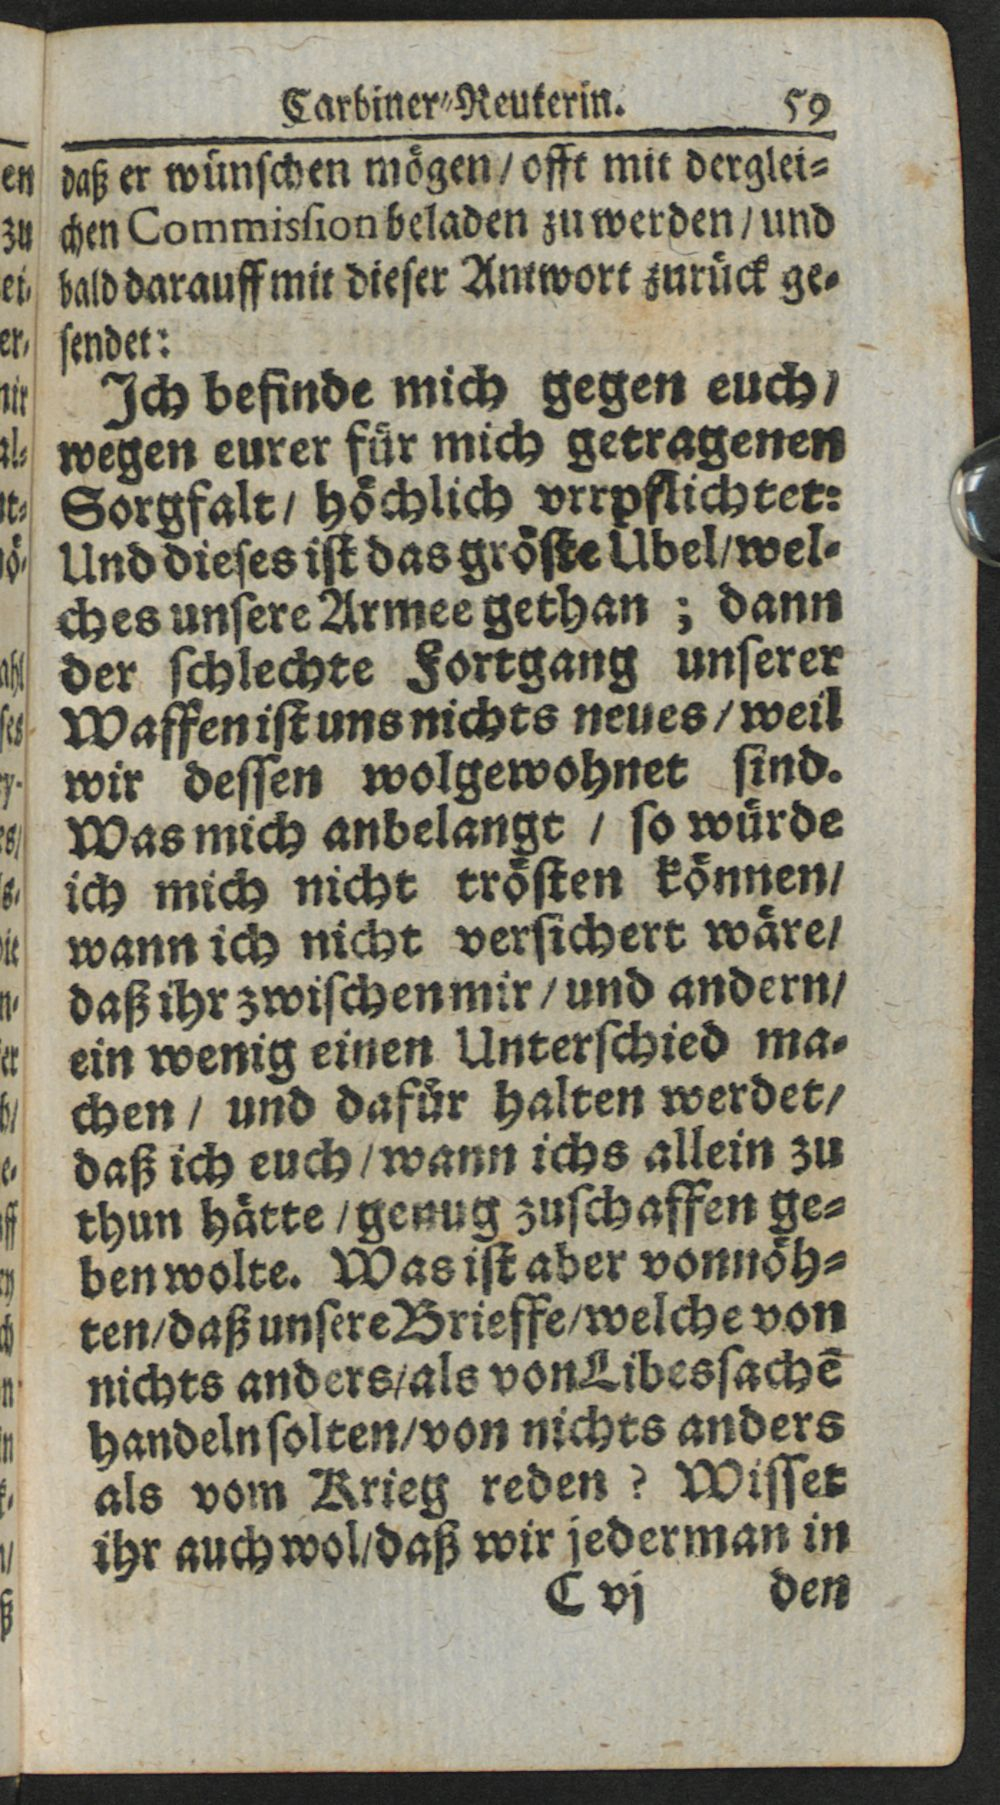 Carbiner-Reuterin. 59
daß er wünschen mögen / offt mit derglei-
chen Commission beladen zu werden / und
bald darauff mit dieser Antwort zurück ge-
sendet:
Ich befinde mich gegen euch /
wegen eurer für mich getragenen
Sorgfalt / höchlich vrrpflichtet:
Und dieses ist das gröste Ubel / wel-
ches unsere Armee gethan ; dann
der schlechte Fortgang unserer
Waffen ist uns nichts neues / weil
wir dessen wolgewohnet sind.
Was mich anbelangt / so würde
ich mich nicht trösten können /
wann ich nicht versichert wäre /
daß ihr zwischen mir / und andern /
ein wenig einen Unterschied ma-
chen / und dafür halten werdet /
daß ich euch / wann ichs allein zu
thun hätte / genug zuschaffen ge-
ben wolte. Was ist aber vonnöh-
ten / daß unsere Brieffe / welche von
nichts anders / als von Libessachē
handeln solten / von nichts anders
als vom Krieg reden ? Wisset
ihr auch wol / daß wir jederman in
C vj den